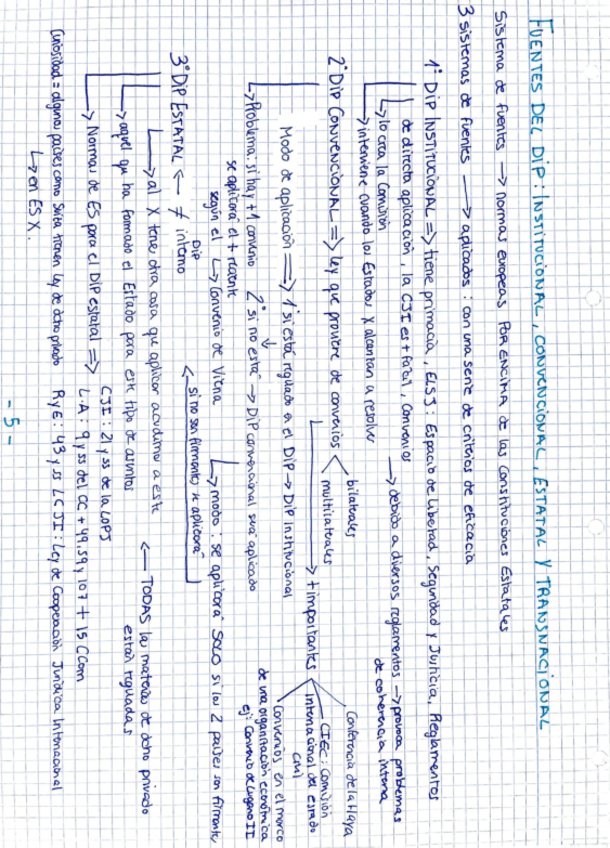 FUENTES DEL DIP: INSTITUCIONAL, CONVENCIONAL, ESTATAL Y TRANSNACIONAL
Sistema de fuentes → normas europeas POR ENCIMA de las Constituciones Estatales
3 sistemas de fuentes → aplicados: con una serie de criterios de eficacia
1º DIP INSTITUCIONAL => tiene primacía, ELSJ: Espacio de Libertad, Seguridad y Justicia, Reglamentos
de directa aplicación, la CJI es + fácil, convenios
→ debido a diversos reglamentos → provoca problemas
de coherencia interna
→ lo crea la Comisión
→ interviene cuando los Estados X alcanzan a resolver
2º DIP CONVENCIONAL => ley que proviene de convenios
bilaterales
multilaterales
→ + importantes
Conferencia de la Haya
CIEC: Comisión
internacional del estado
civil
Convenios en el marco
de una organización económica
ej: Convenio de Lugano II
Modo de aplicación => 1º si está regulado en el DIP → DIP Institucional
2º si no está → DIP convencional será aplicado
→ Problema: si hay + 1 convenio
se aplicará el + reciente
según el → Convenio de Viena
→ modo: se aplicará SOLO si los 2 países son firmantes
si no son firmantes se aplicará
3º DIP ESTATAL ← ≠ DIP interno
→ al X tener otra cosa que aplicar acudimos a este
→ aquel que ha formado el Estado para este tipo de asuntos
← TODAS las materias de dcho privado
están reguladas
→ Normas de ES para el DIP estatal =>
CJI: 21 y ss de la LOPJ
L.A: 9 y ss del CC + 49, 59 y 107 + 15 CCom
RyE: 43 y ss LCJI: Ley de Cooperación Jurídica Internacional
Curiosidad = algunos países como Suiza tienen ley de dcho privado
→ en ES X.
- 5 -